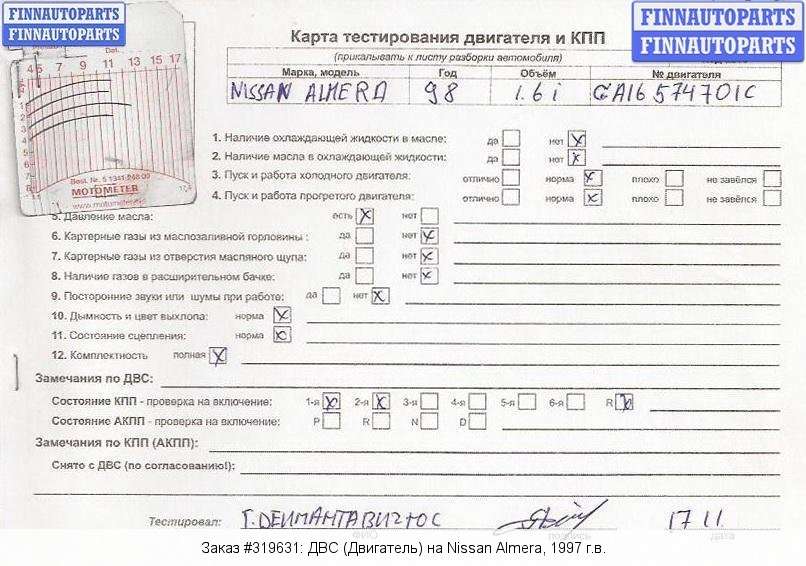 FINNAUTOPARTS
FINNAUTOPARTS
FINNAUTOPARTS
FINNAUTOPARTS
Карта тестирования двигателя и КПП
(прикалывать к листу разборки автомобиля)
Марка, модель Год Объём № двигателя
NISSAN ALMERA 98 1.6 i GA16 574701C
Dat.
4 5 7 9 11 13 15 17
Best. Nr. 5 1341 248 00
MOTOMETER
www.motometer.
1. Наличие охлаждающей жидкости в масле: да нет
2. Наличие масла в охлаждающей жидкости: да нет
3. Пуск и работа холодного двигателя: отлично норма плохо не завёлся
4. Пуск и работа прогретого двигателя: отлично норма плохо не завёлся
5. Давление масла: есть нет
6. Картерные газы из маслозаливной горловины : да нет
7. Картерные газы из отверстия масляного щупа: да нет
8. Наличие газов в расширительном бачке: да нет
9. Посторонние звуки или шумы при работе: да нет
10. Дымность и цвет выхлопа: норма
11. Состояние сцепления: норма
12. Комплектность полная
Замечания по ДВС:
Состояние КПП - проверка на включение: 1-я 2-я 3-я 4-я 5-я 6-я R
Состояние АКПП - проверка на включение: P R N D
Замечания по КПП (АКПП):
Снято с ДВС (по согласованию!):
Тестировал: Т. ДЕИМАНТАВИЧЮС 17 11
ФИО подпись дата
Заказ #319631: ДВС (Двигатель) на Nissan Almera, 1997 г.в.